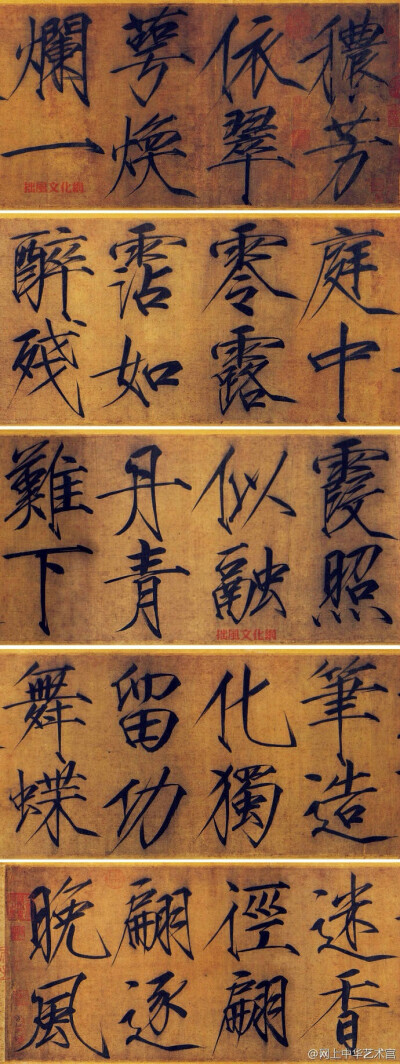 穠芳
依翠
萼煥
爛一
拙風文化網
庭中
零露
霑如
醉殘
霞照
似融
丹青
難下
拙風文化網
筆造
化獨
留功
舞蝶
迷香
徑翩
翩逐
晚風
@网上中华艺术宫